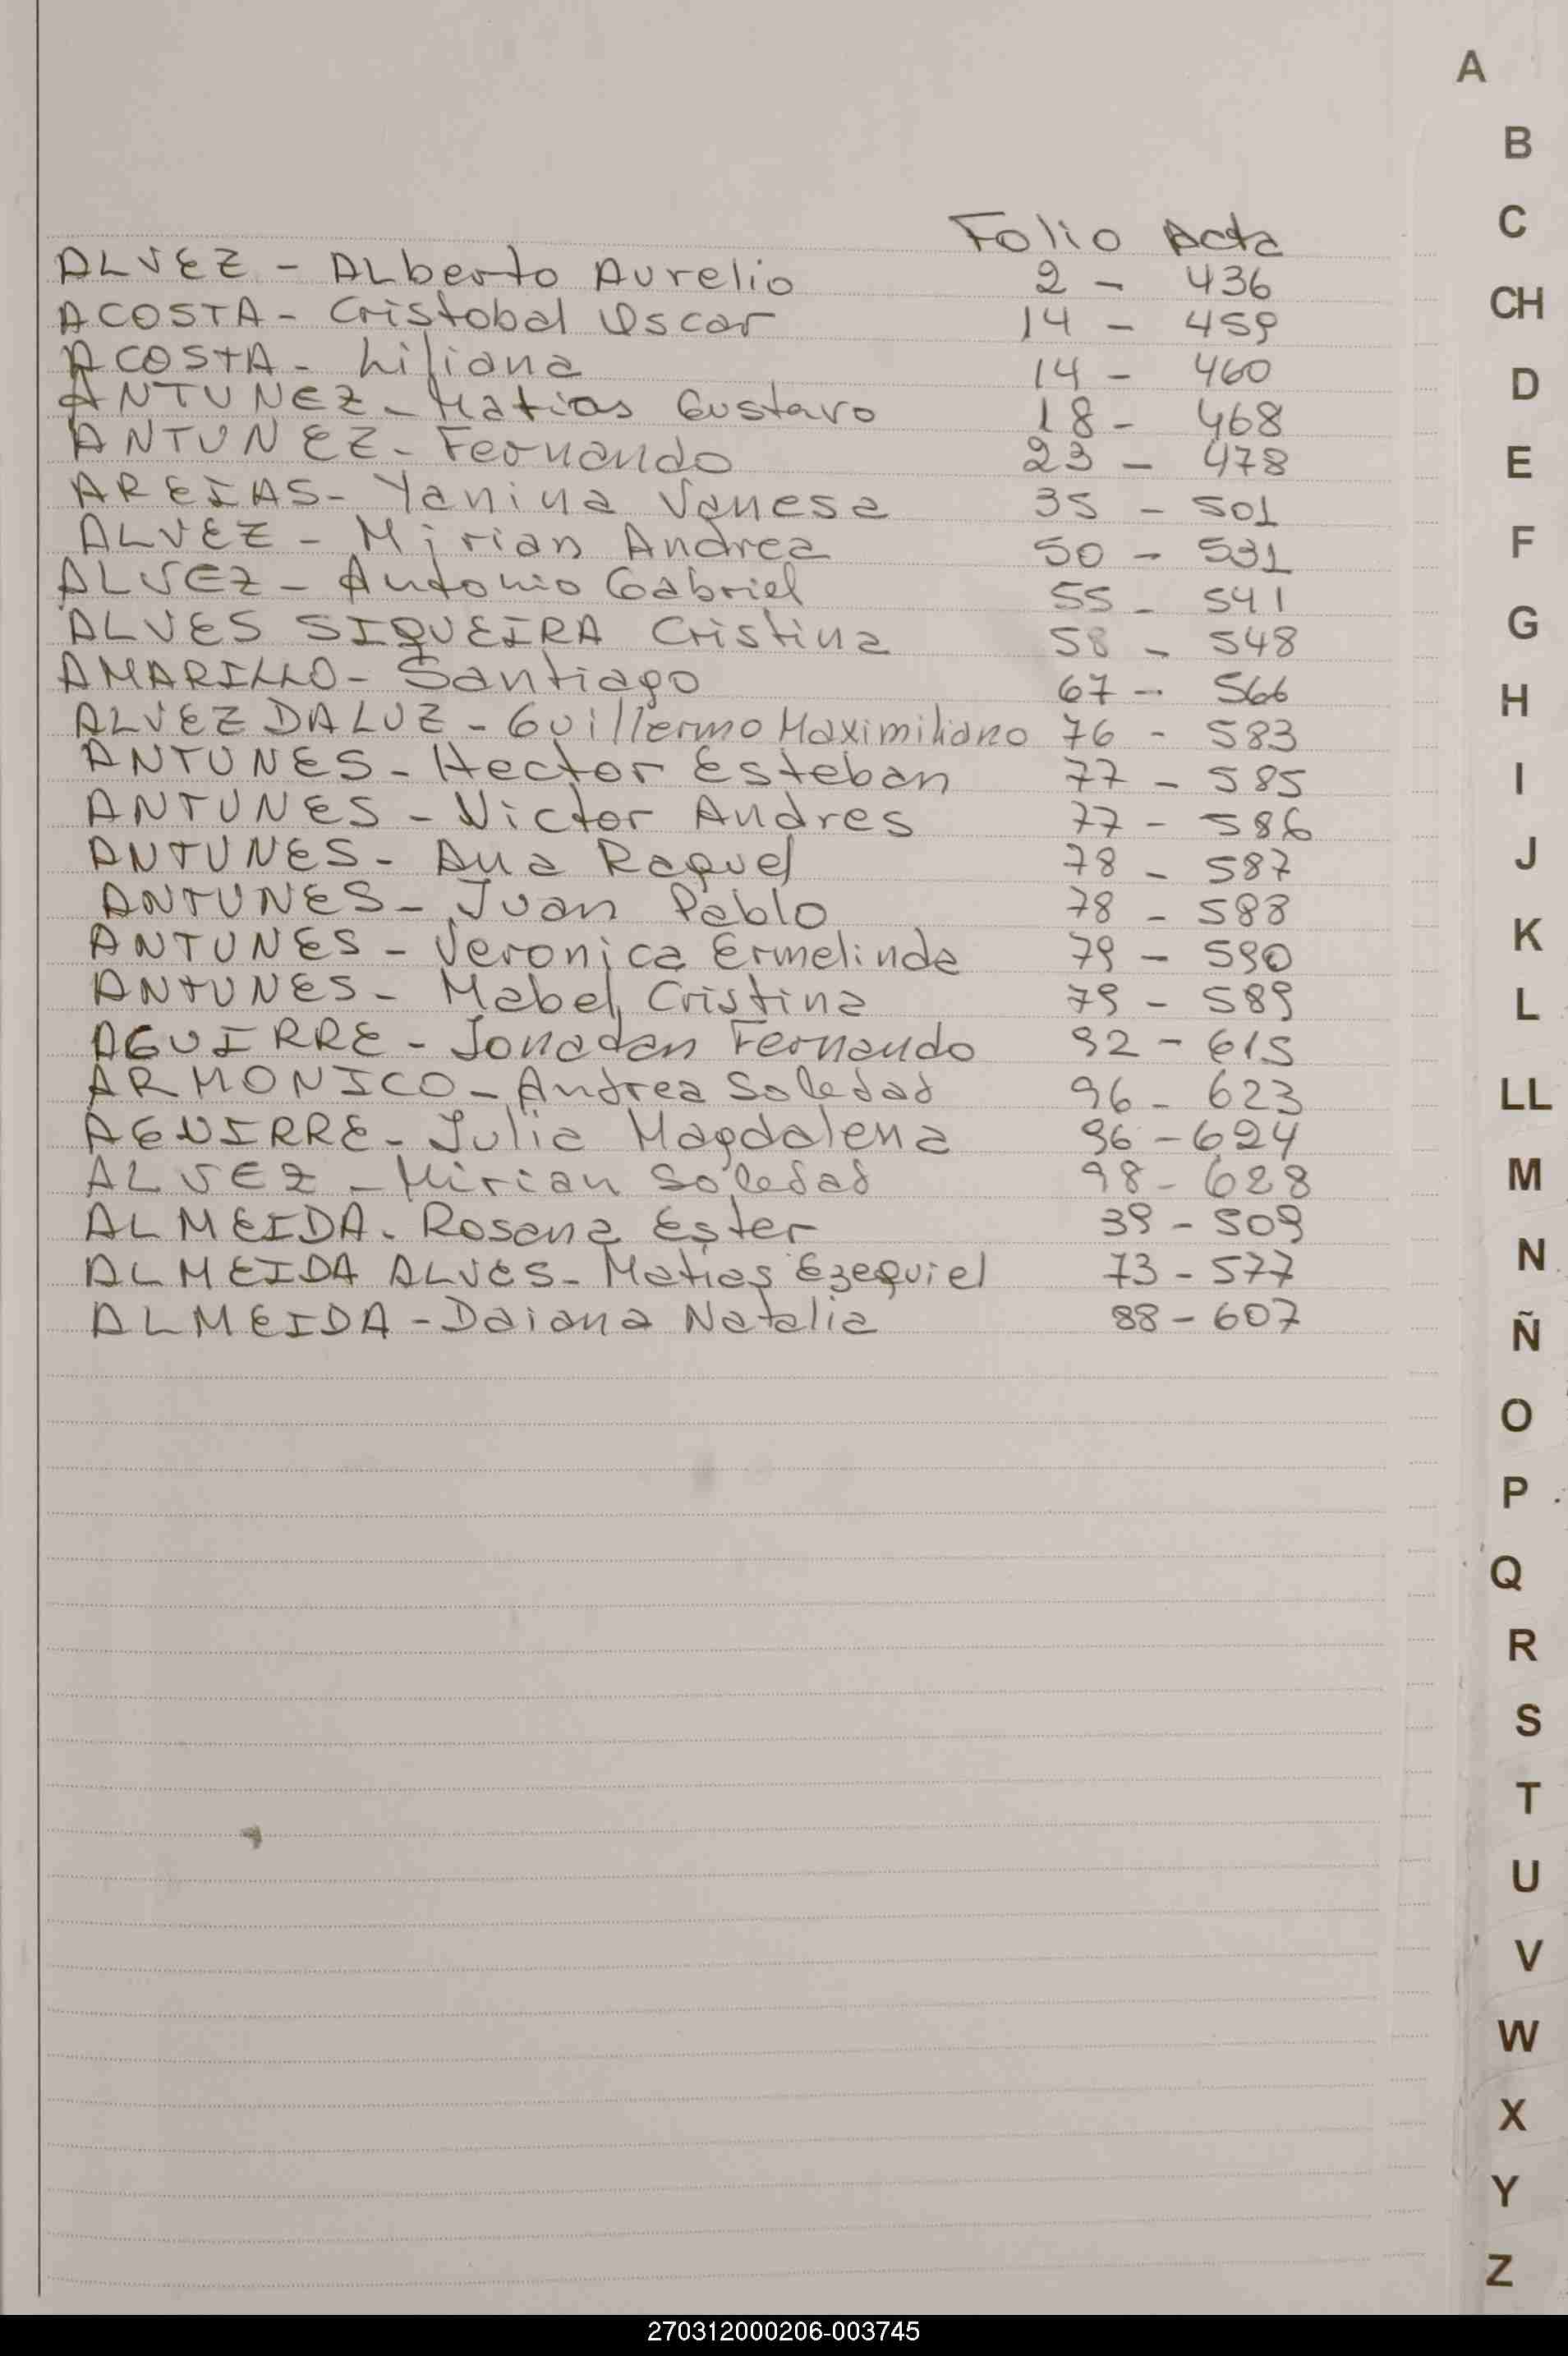 A
B
C
CH
D
E
F
G
H
I
J
K
L
LL
M
N
Ñ
O
P
Q
R
S
T
U
V
W
X
Y
Z
Folio Acta
ALVEZ - ALberto Aurelio 2 - 436
ACOSTA - Cristobal Oscar 14 - 459
ACOSTA - Liliana 14 - 460
ANTUNEZ - Matias Gustavo 18 - 468
ANTUNEZ - Fernando 23 - 478
AREIAS - Yanina Vanesa 35 - 501
ALVEZ - Mirian Andrea 50 - 531
ALVEZ - Antonio Gabriel 55 - 541
ALVES SIQUEIRA Cristina 58 - 548
AMARILLO - Santiago 67 - 566
ALVEZ DALUZ - Guillermo Maximiliano 76 - 583
ANTUNES - Hector Esteban 77 - 585
ANTUNES - Victor Andres 77 - 586
ANTUNES - Ana Raquel 78 - 587
ANTUNES - Juan Pablo 78 - 588
ANTUNES - Veronica Ermelinda 79 - 590
ANTUNES - Mabel Cristina 79 - 589
AGUIRRE - Jonadan Fernando 92 - 615
ARMONICO - Andrea Soledad 96 - 623
AGUIRRE - Julia Magdalena 96 - 624
ALVEZ - Mirian Soledad 98 - 628
ALMEIDA - Rosana Ester 39 - 509
ALMEIDA ALVES - Matias Ezequiel 73 - 577
ALMEIDA - Daiana Natalia 88 - 607
270312000206-003745